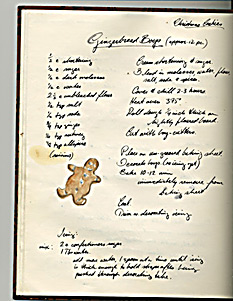 Christmas Cookies
Gingerbread Boys (approx. 12 pc.)
½ c shortening
½ c sugar
½ c dark molasses
¼ c water
2½ c unbleached flour
¾ tsp salt
½ tsp soda
¾ tsp ginger
¼ tsp nutmeg
⅛ tsp allspice
(raisins)
Cream shortening & sugar
Blend in molasses, water, flour,
salt, soda & spices.
Cover & chill 2-3 hours
Heat oven 375°
Roll dough ¼ inch thick on
lightly floured board
Cut with boy-cutters
Place on un-greased baking sheet
Decorate boys (raisins opt)
Bake 10-12 min
immediately remove from
baking sheet
Cool
Trim w. decorating icing
Icing:
mix: 2 c confectioners sugar
1 Tb water
add more water, 1 spoon at a time until icing
is thick enough to hold shape after being
pushed through decorating tube.